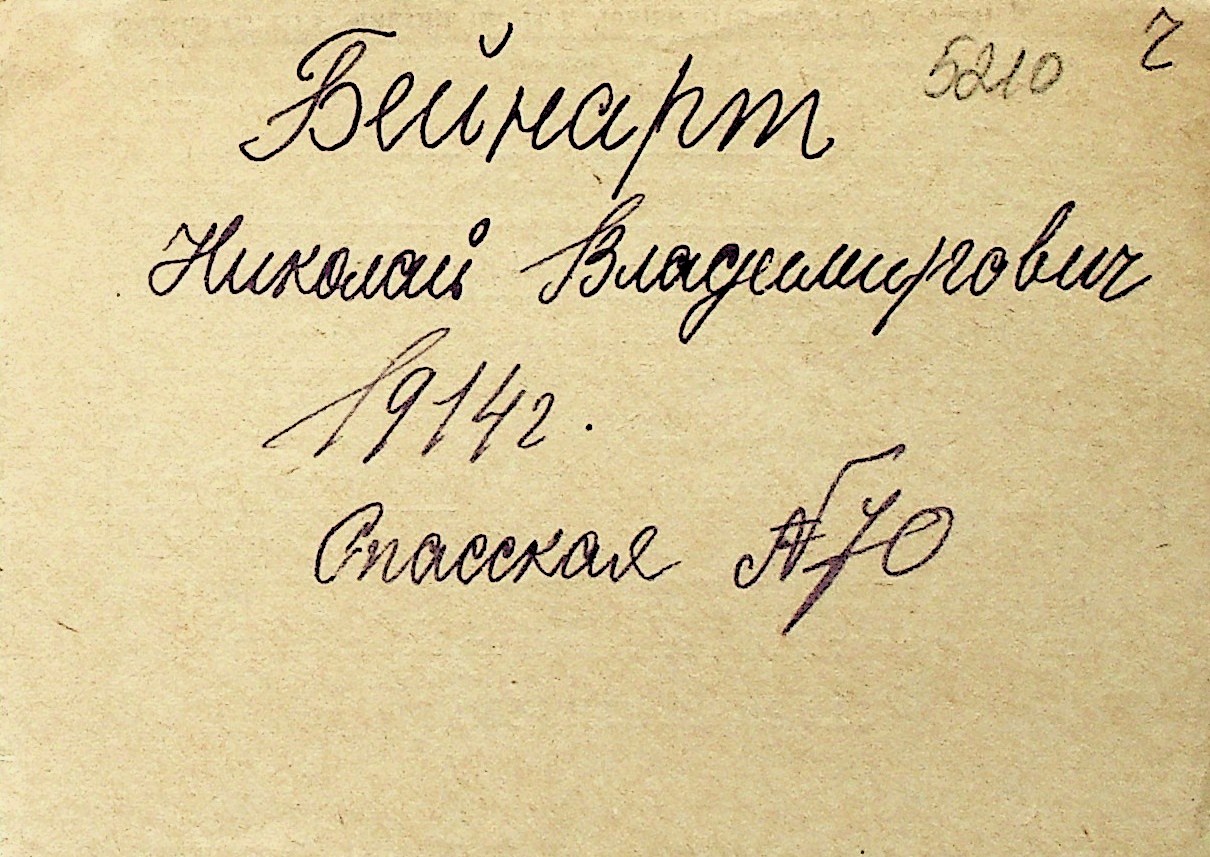 Бейнарт 5210 ч
Николай Владимирович
1914г.
Спасская №70